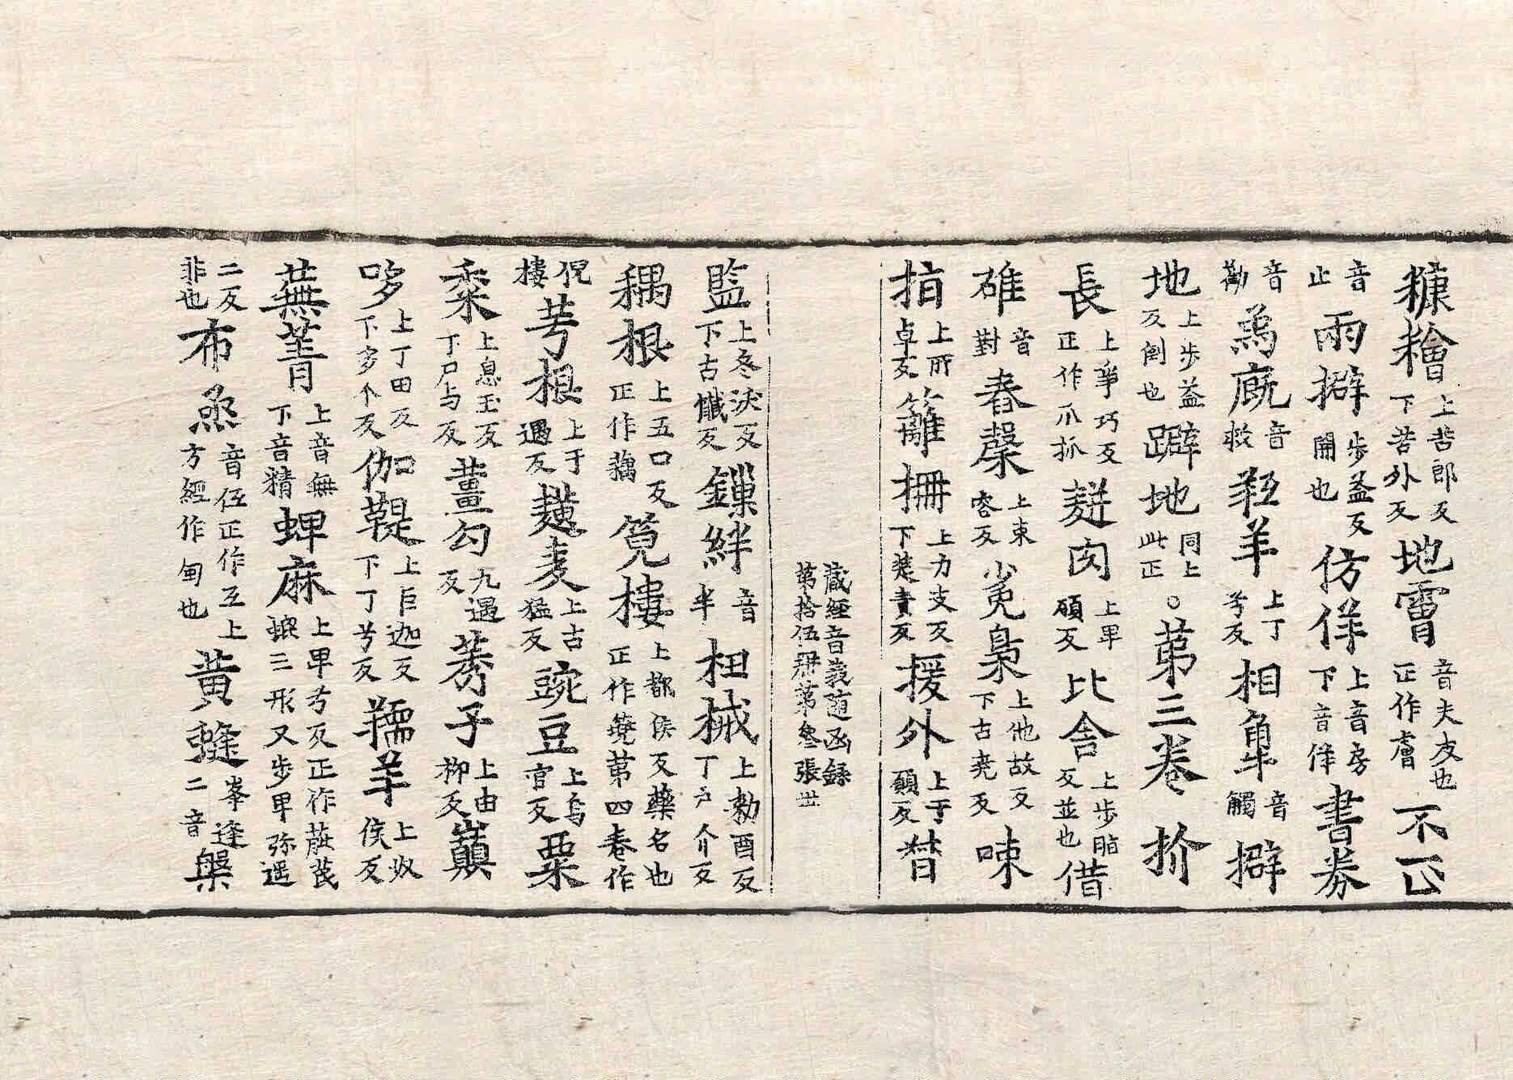 糠糩上苦郎反下苦外反地䨱音夫友也正作膚不正
音止兩擗步益反開也仿佯上音房下音佯書券
音勸爲廐音救羖羊上丁兮反相觕音觸擗
地上步益反倒也躃地同上此正○第三卷抓
長上爭巧反正作爪抓麸肉上卑碩反比舍上步脂反並也借
碓音對舂糳上束容反㲋梟上他故反下古堯反㖡
㨋上所卓反籬柵上力支反下楚責反援外上于願反暜
藏經音義隨函錄第拾伍冊第叄張 世
監上冬淚反下古懺反鏁絆音半杻械上勑酉反丁戶介反
耦根上五口反正作藕筧樓上都侯反藥名也正作䥶第四卷作
倪樓芌根上于遇反䵃麦上古猛反豌豆上烏官反粟
粢上息玉反丁尸与反薑勾九遇反莠子上由柳反巔
哆上丁田反下多个反伽鞮上巨迦反下丁兮反羺羊上奴侯反
蕪菁上音無下音精蜱麻上卑兮反正作蓖䗫三形又步卑弥遥
二反非也布𤇆音伍正作互上方經作甸也黃䗬峯逢二音槃